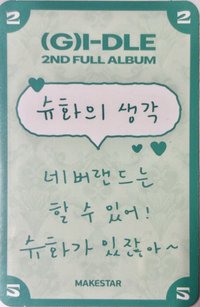 2 2
(G)I-DLE
2ND FULL ALBUM
슈화의 생각
네버랜드는
할 수 있어!
슈화가 있잖아~
5 MAKESTAR 5